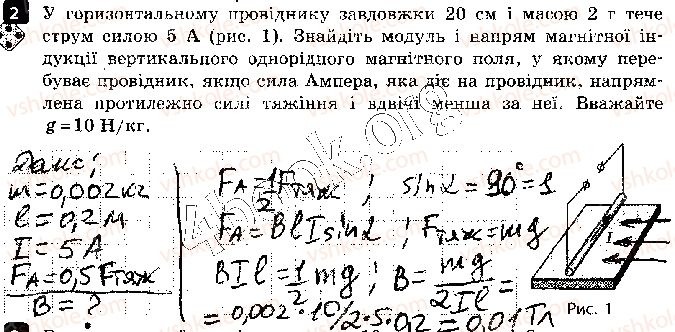 2 У горизонтальному провіднику завдовжки 20 см і масою 2 г тече
струм силою 5 А (рис. 1). Знайдіть модуль і напрям магнітної ін-
дукції вертикального однорідного магнітного поля, у якому пере-
буває провідник, якщо сила Ампера, яка діє на провідник, напрям-
лена протилежно силі тяжіння і вдвічі менша за неї. Вважайте
g = 10 Н/кг.
Дано:
m = 0,002 кг
l = 0,2 м
I = 5 А
FA = 0,5 Fтяж
B = ?
FA = 1/2 Fтяж ; sin α = 90° = 1
FA = B l I sin α ; Fтяж = mg
B I l = 1/2 mg ; B = mg/2Il =
= 0,002 · 10/2·5·0,2 = 0,01 Тл
I
Рис. 1
4book.org